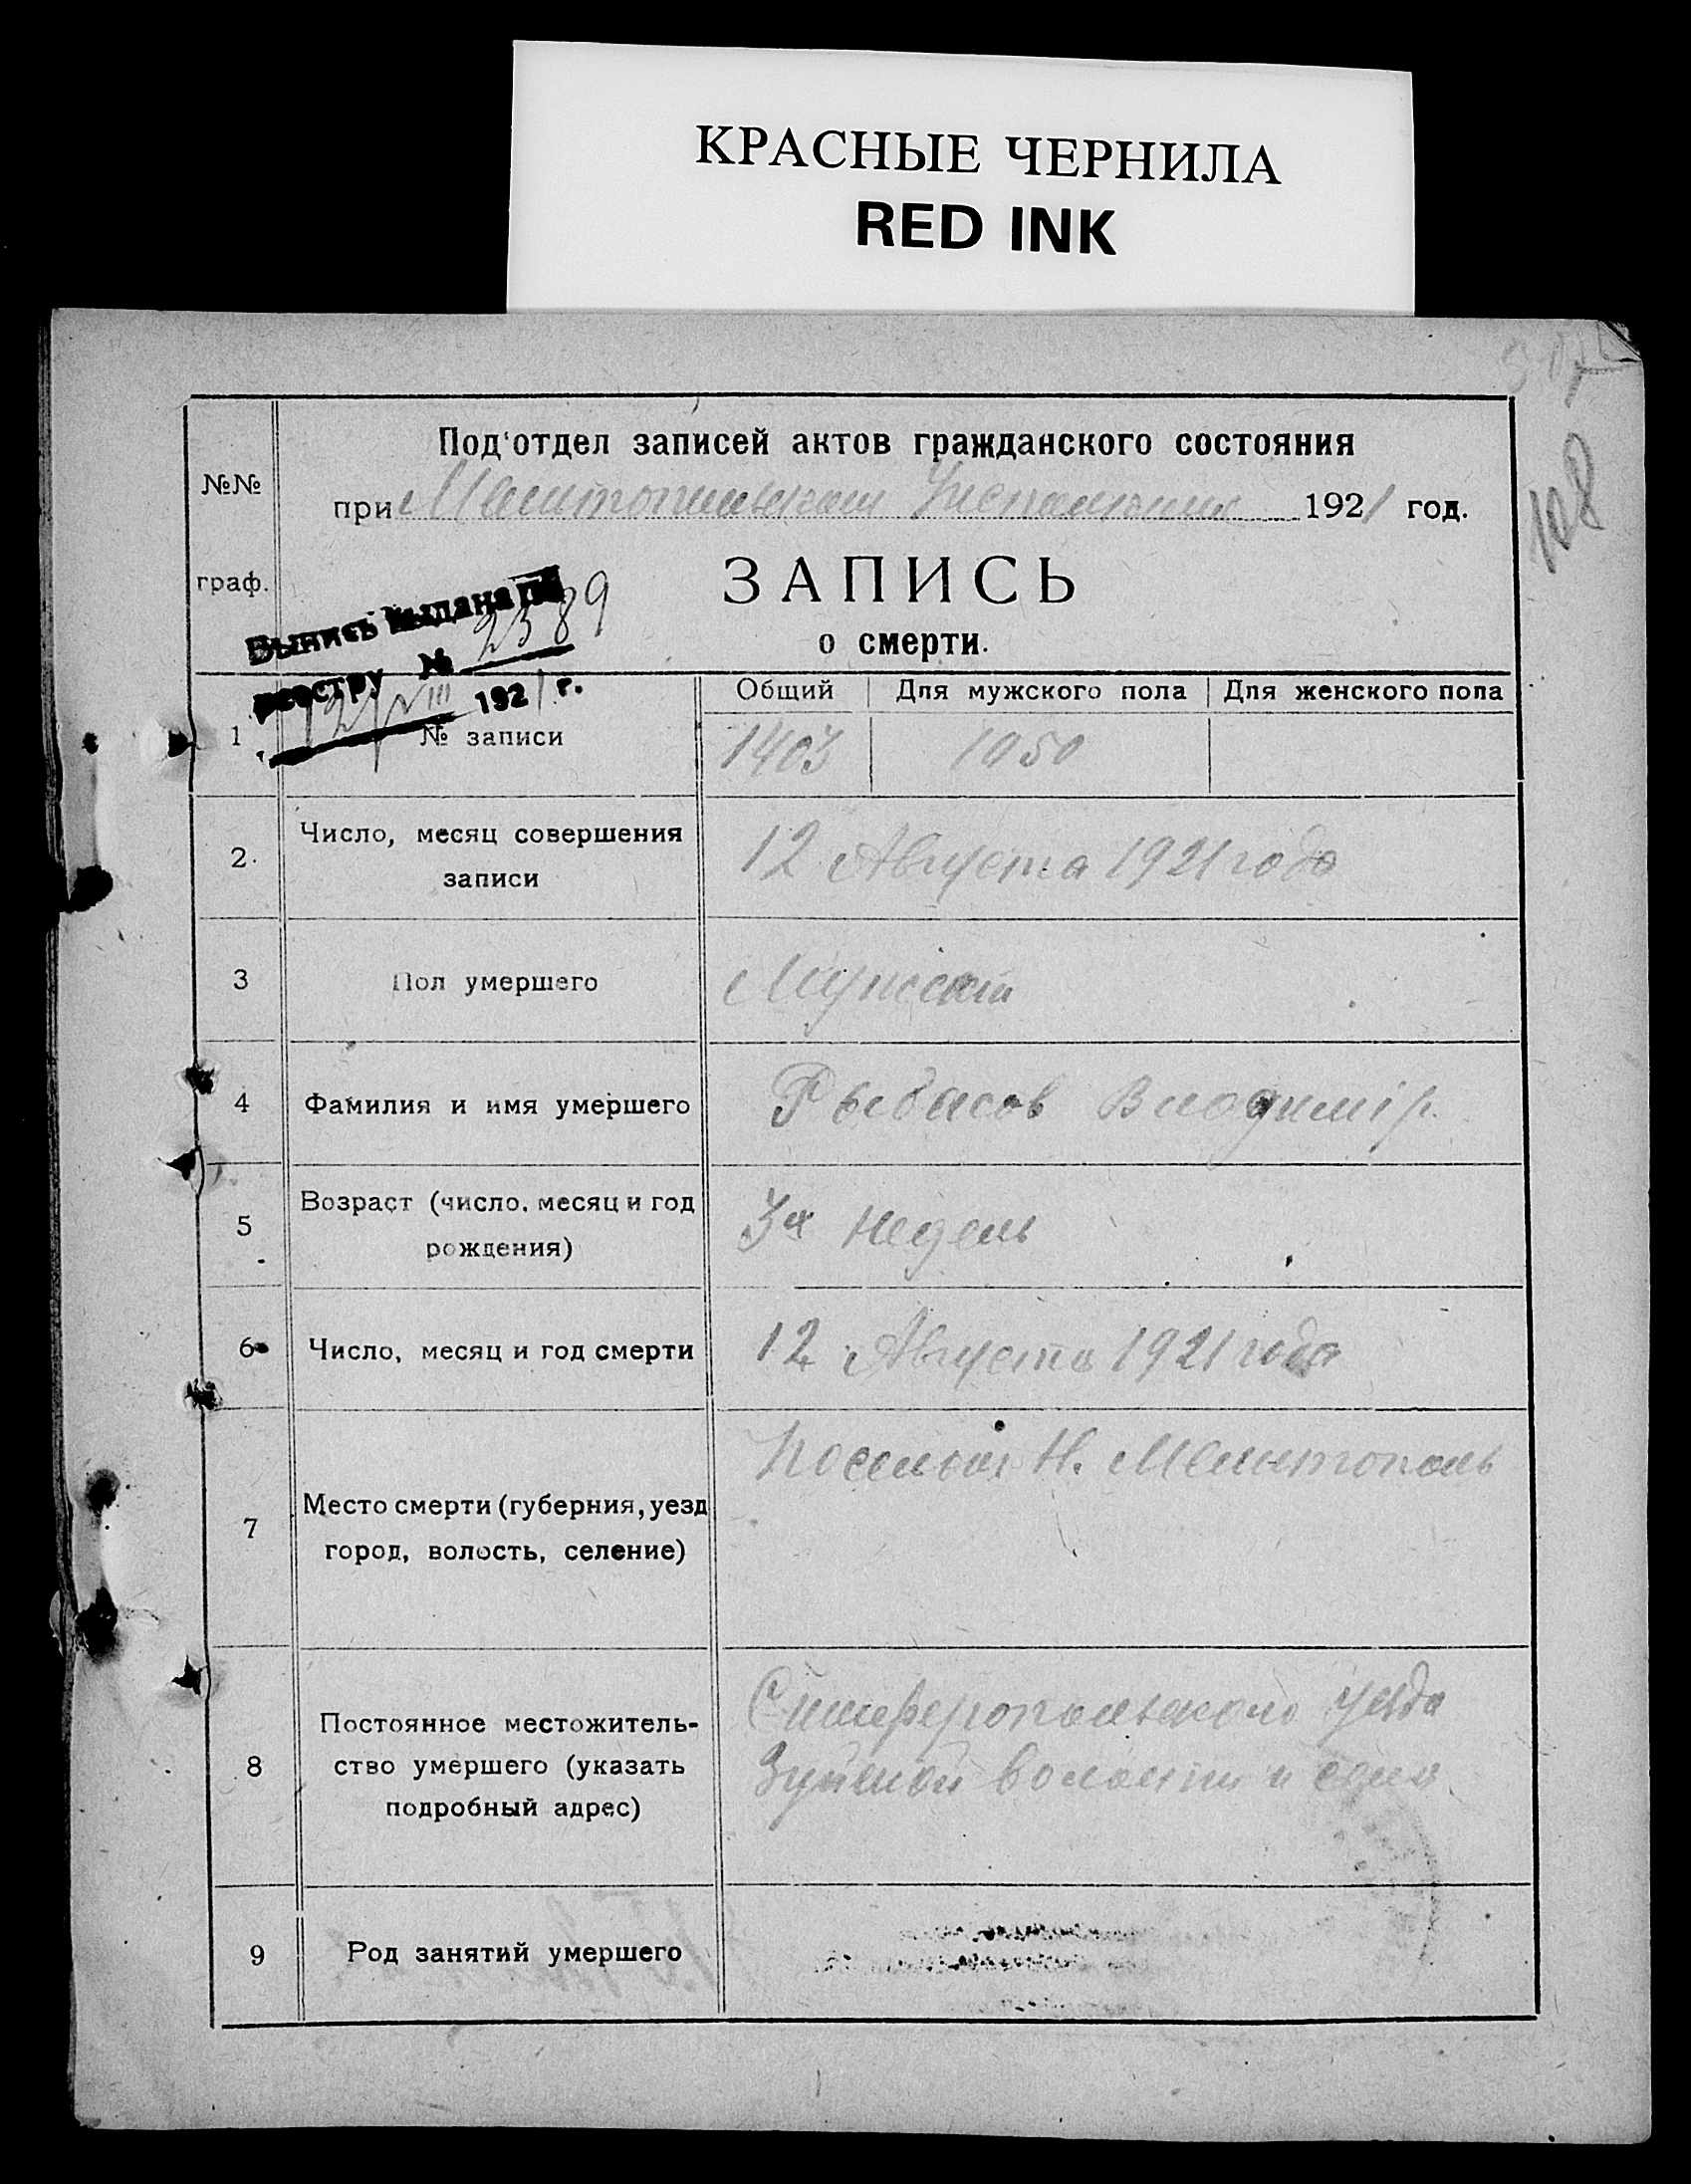 КРАСНЫЕ ЧЕРНИЛА
RED INK
Под'отдел записей актов гражданского состояния
№№
при Мелитопольском Исполкоме 1921 год.
108
граф.
ЗАПИСЬ
о смерти.
Выпись выдана по
реестру № 2389
12/VIII 1921 г.
Общий Для мужского пола Для женского пола
1 № записи 1403 1050
2. Число, месяц совершения
записи
12 Августа 1921 года
3 Пол умершего Мужской
4 Фамилия и имя умершего Рыбасов Владимiр.
5 Возраст (число, месяц и год
рождения)
3х недель
6 Число, месяц и год смерти 12 Августа 1921 года
7 Место смерти (губерния, уезд
город, волость, селение)
Поселок Н. Мелитополь
8 Постоянное местожитель-
ство умершего (указать
подробный адрес)
Симферопольского уезда
Зуйской волости и села
9 Род занятий умершего